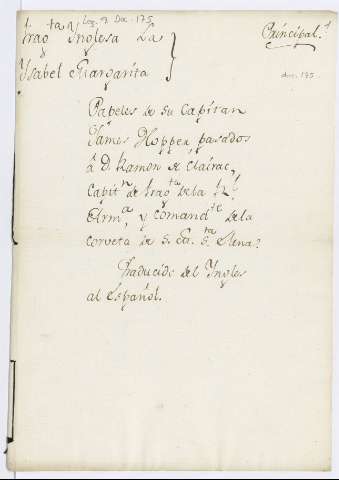 Leg. 3 Doc. 175
Frag.ta Inglesa La
Principal.l
Ysabel Margarita
doc. 175
Papeles de su Capitan
James Hopper pasados
á D.n Ramon de Clairac,
Capit.n de Frag.ta de la R.l
Arm.a, y comand.te de la
corveta de S. M. S.ta Elena.
Traducido del Yngles
al Español.